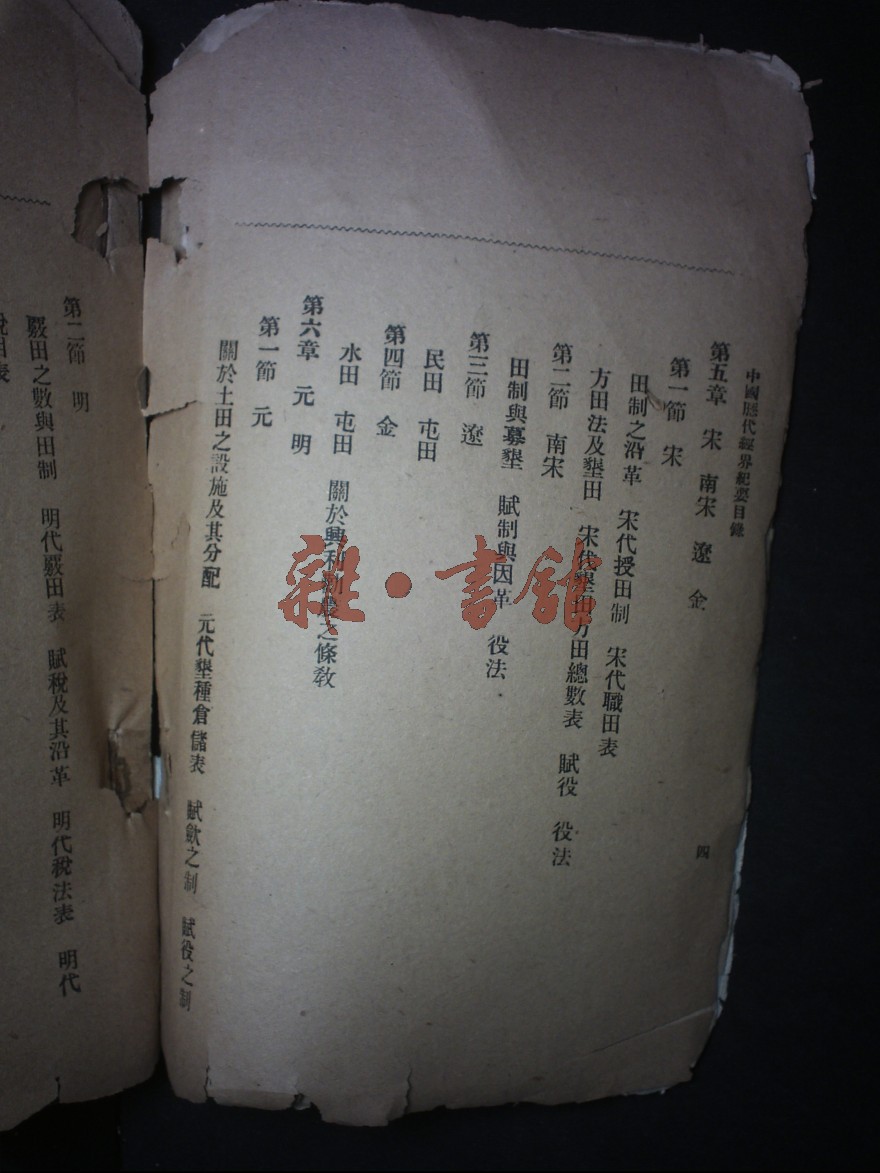 中國歷代經界紀要目錄
四
第五章　宋　南宋　遼　金
第一節　宋
田制之沿革　宋代授田制　宋代職田表
方田法及墾田　宋代墾田方田總數表　賦役　役法
第二節　南宋
田制與募墾　賦制與因革　役法
第三節　遼
民田　屯田
第四節　金
水田　屯田　關於興利勸農之條教
第六章　元　明
第一節　元
關於土田之設施及其分配　元代墾種倉儲表　賦斂之制　賦役之制
第二節　明
覈田之數與田制　明代覈田表　賦稅及其沿革　明代稅法表　明代
稅目表
雜·書館